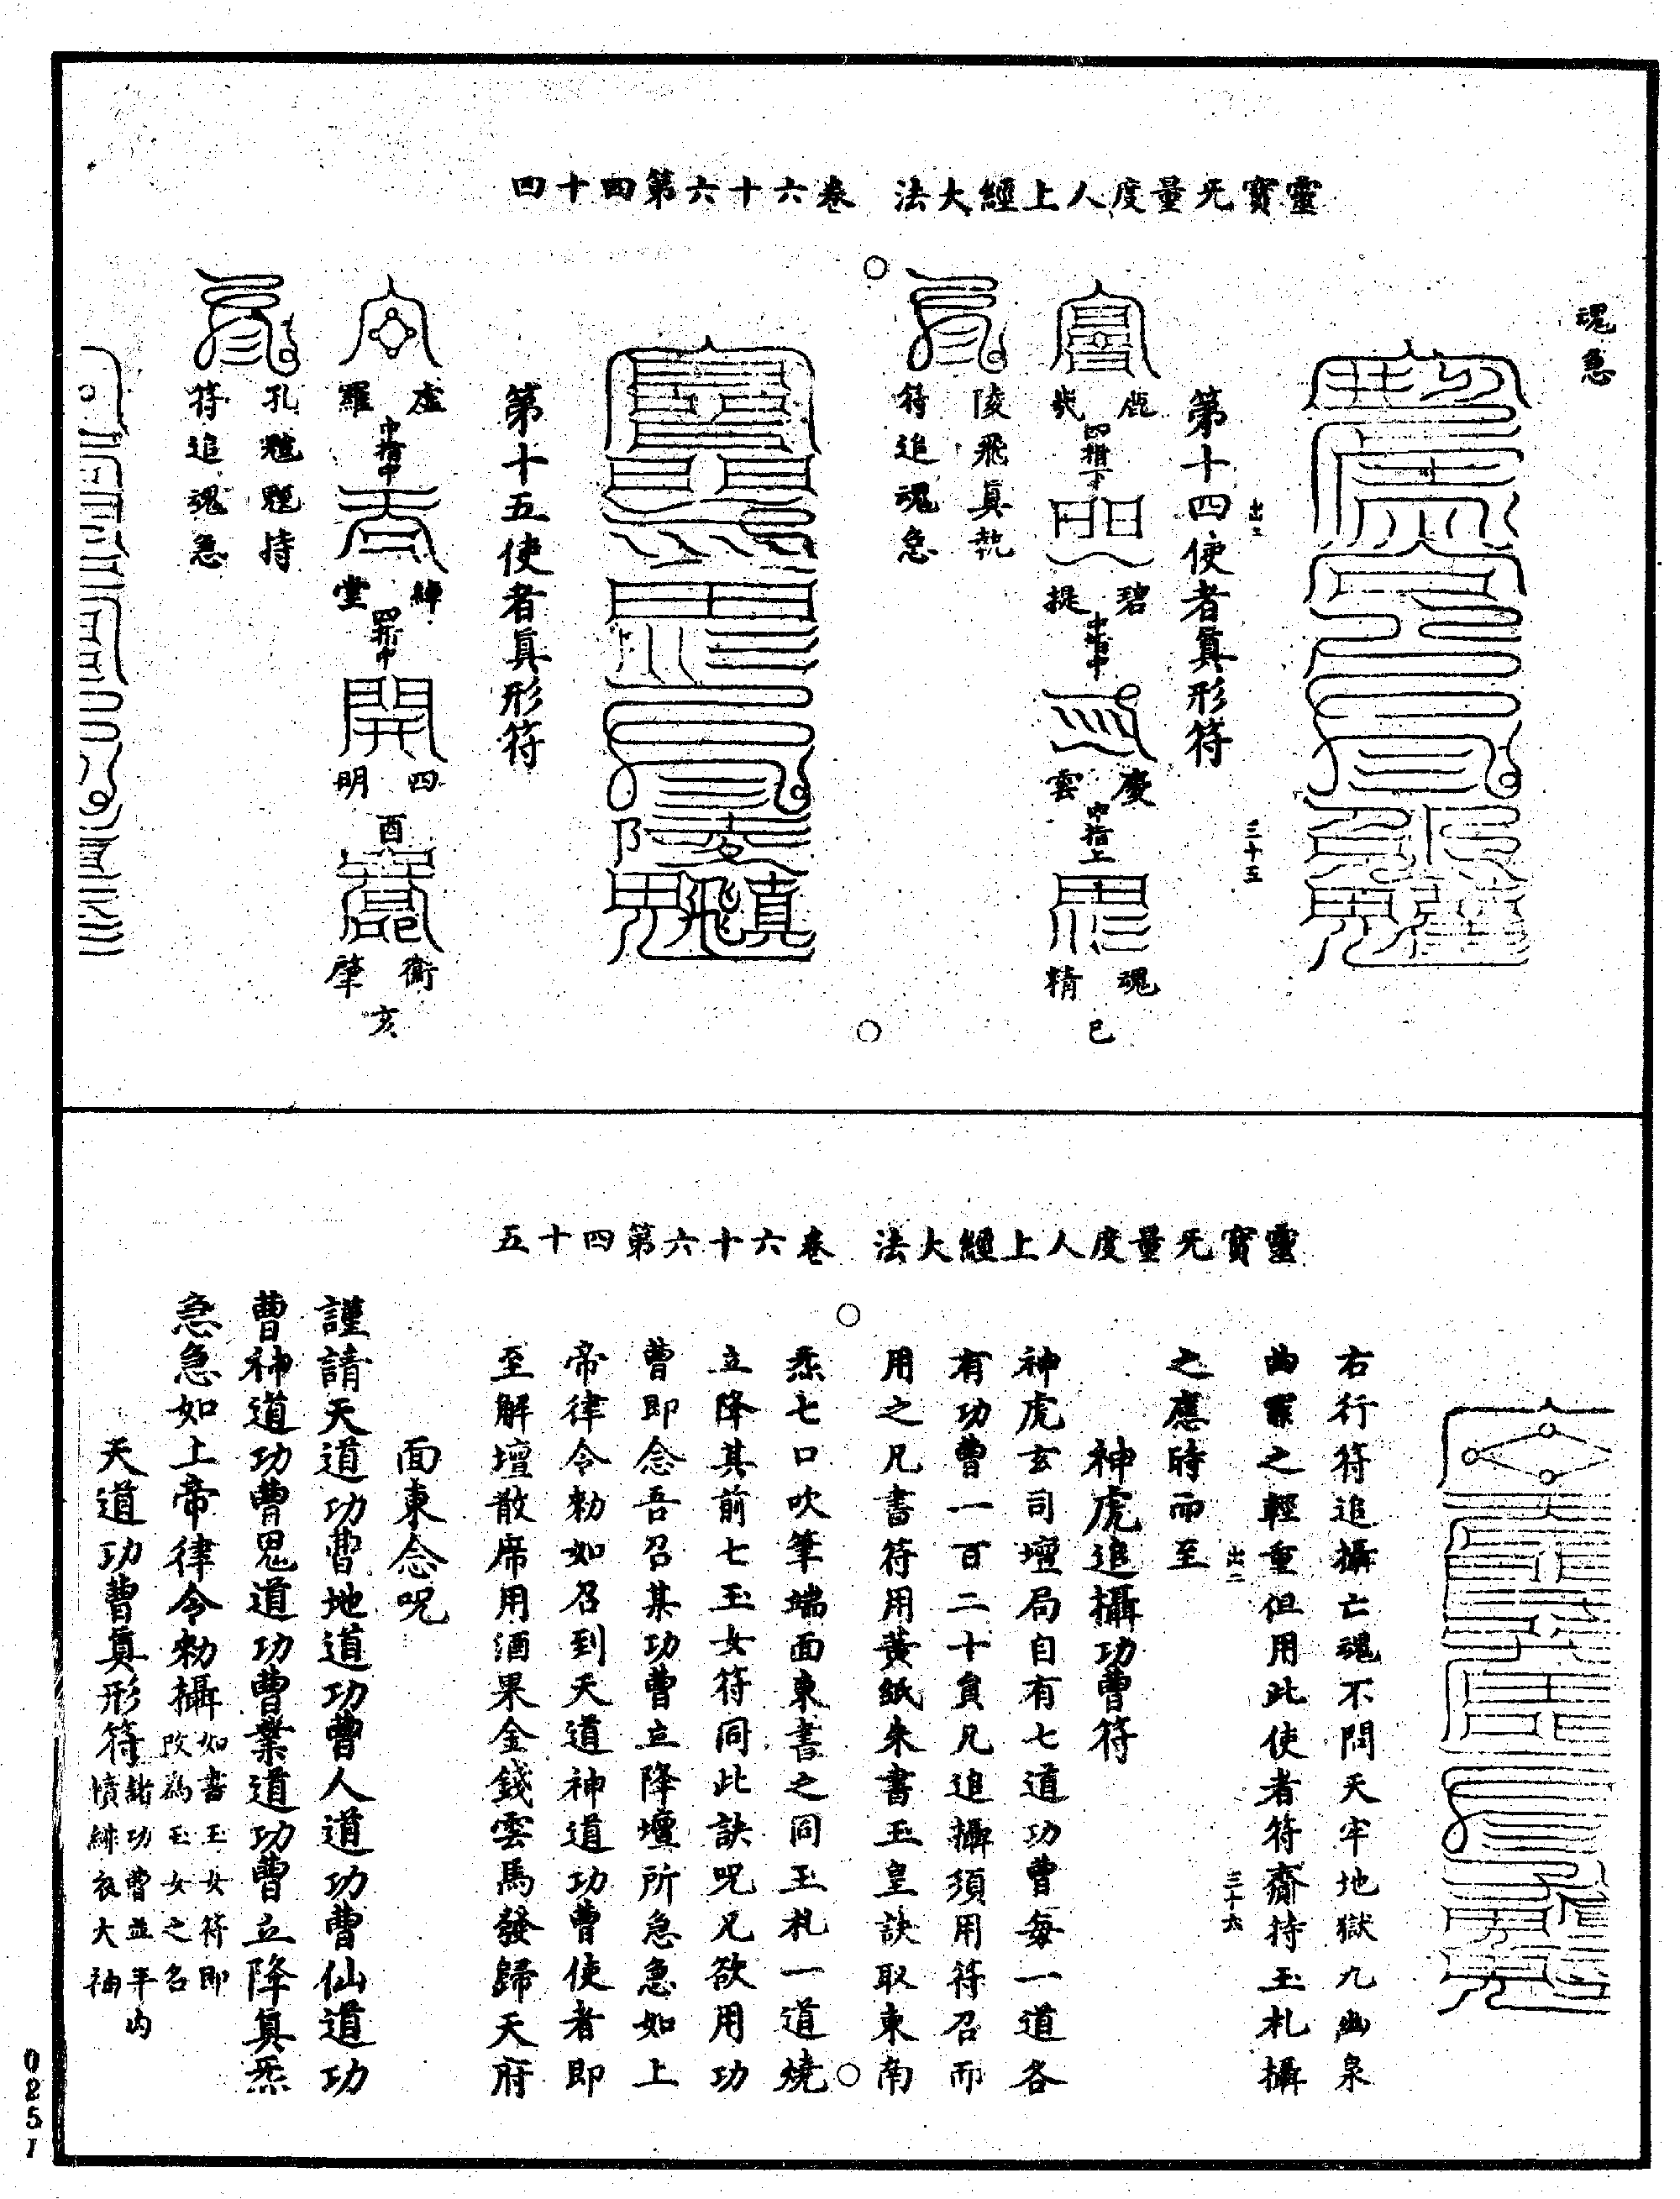 靈寶无量度人上經大法　卷六十六第四十四
魂急
出二
三十五
第十四使者真形符
鹿
四指下
碧
提
中指中
慶
雲
中指上
魂
精
巳
陵飛真執
符追魂急
第十五使者真形符
虛
羅
中指中
堂
四指中
四
明
酉
衛
肇
亥
符追魂急
靈寶无量度人上經大法　卷六十六第四十五
右行符追攝亡魂不問天牢地獄九幽泉
曲罪之輕重但用此使者符齋持玉札攝
之應時而至
出二
三十六
神虎追攝功曹符
神虎玄司壇局自有七道功曹每一道各
有功曹一百二十員凡追攝須用符召而
用之凡書符用黃紙朱書玉皇訣取東南
炁七口吹筆端面東書之同玉札一道燒
立降其前七玉女符同此訣呪凡欲用功
曹即念吾召某功曹立降壇所急急如上
帝律令勑如召到天道神道功曹使者即
至解壇散席用酒果金錢雲馬發歸天府
面東念呪
謹請天道功曹地道功曹人道功曹仙道功
曹神道功曹鬼道功曹業道功曹立降真炁
急急如上帝律令勑攝如書玉女符即改為玉女之名
天道功曹真形符諸功曹並平巾幘緋衣大袖
0251